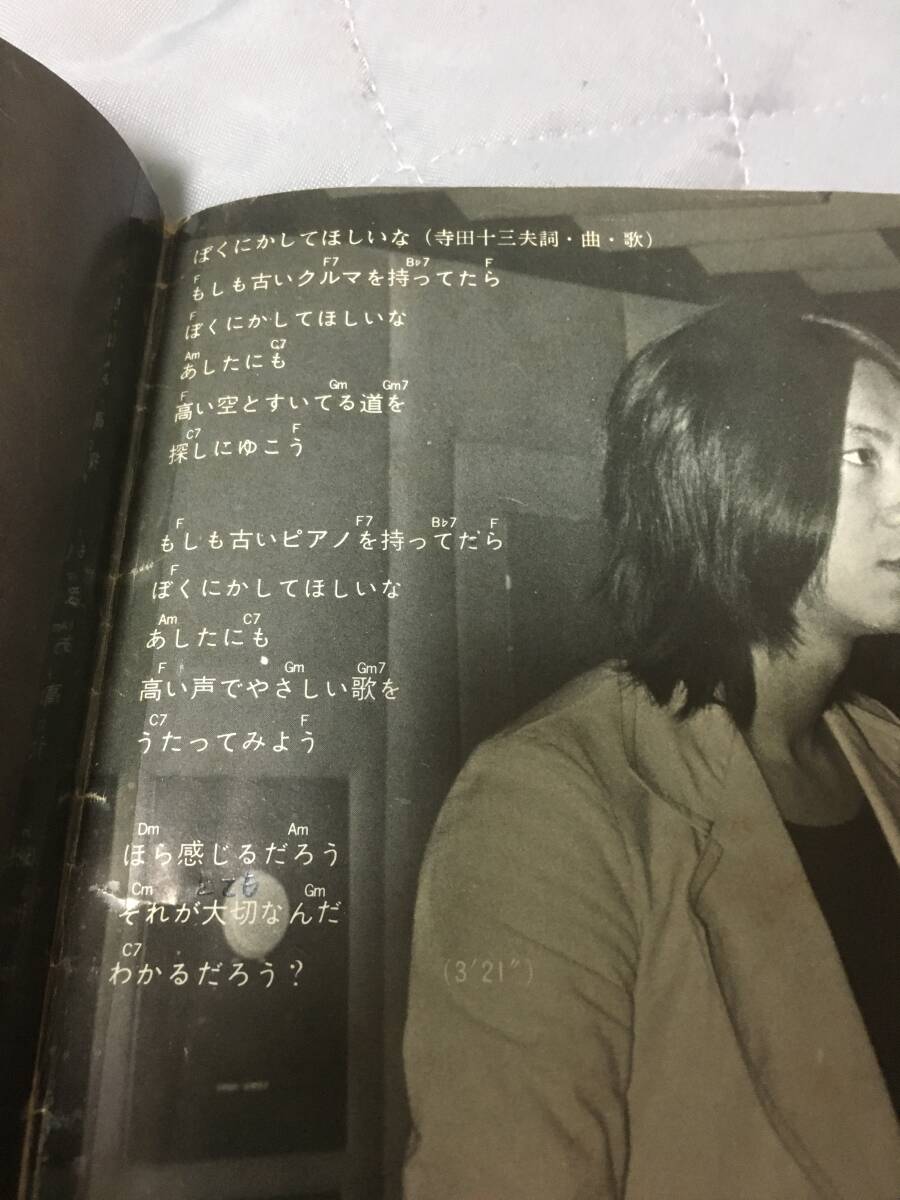 ぼくにかしてほしいな（寺田十三夫詞・曲・歌）
F F7 B♭7 F
もしも古いクルマを持ってたら
F
ぼくにかしてほしいな
Am C7
あしたにも
F Gm Gm7
高い空とすいてる道を
C7 F
探しにゆこう
F F7 B♭7 F
もしも古いピアノを持ってたら
F
ぼくにかしてほしいな
Am C7
あしたにも
F Gm Gm7
高い声でやさしい歌を
C7 F
うたってみよう
Dm Am
ほら感じるだろう
とても
Cm Gm
それが大切なんだ
C7
わかるだろう？
(3′21″)